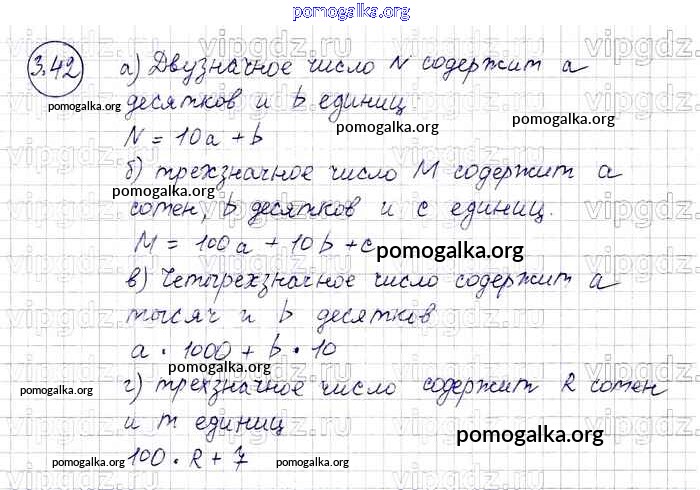 pomogalka.org
3.42 а) Двузначное число N содержит a
десятков и b единиц
pomogalka.org
pomogalka.org
pomogalka.org
N = 10a + b
б) трехзначное число M содержит a
pomogalka.org
сотен, b десятков и c единиц.
M = 100a + 10b + c
pomogalka.org
в) Четырехзначное число содержит a
тысяч и b десятков
a · 1000 + b · 10
pomogalka.org
pomogalka.org
г) трехзначное число содержит R сотен
и m единиц
pomogalka.org
100 · R + 7
pomogalka.org
pomogalka.org
vipgdz.ru